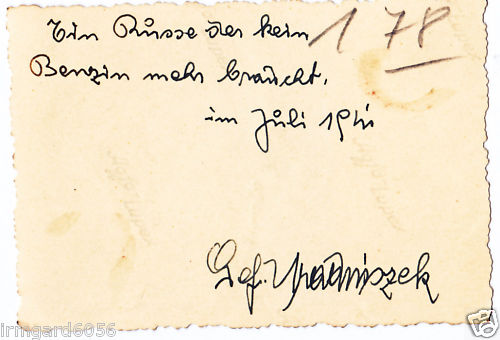 Ein Russe der kein
178
Benzin mehr braucht.
im Juli 1941
Gef.
irmgard6056